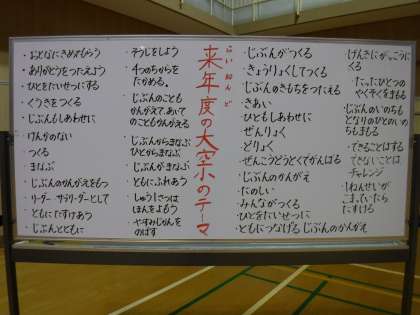 らいねんど
来年度の大空のテーマ
・おとなにきめてもらう
・ありがとうをつたえよう
・ひとをたいせつにする
・くうきをつくる
・じぶんもしあわせに
・けんかのない
・つくる
・まなぶ
・じぶんのかんがえをもつ
・リーダー サブリーダーとして
・ともにたすけあう
・じぶんとともに
・そうじをしよう
・4つのちからを
たかめる。
・じぶんのことも
かんがえて、あいて
のこともかんがえる
・じぶんからまなぶ
ひとからまなぶ
・じぶんがまなぶ
・ともにふれあう
・しゅう1さつは
ほんをよもう
・やすみじかんを
のばす
・じぶんがつくる
・きょうりょくしてつくる
・じぶんのきもちをつたえる
・きあい
・ひともしあわせに
・ぜんりょく
・どりょく
・ぜんこうどうとくでがんばる
・じぶんのかんがえ
・たのしい
・みんながつくる
・ひとをたいせつに
・ともにつなげるじぶんのかんがえ
・げんきにがっこうに
くる
・たったひとつの
やくそくをまもる
・じぶんのいのちも
となりのひとのい
のちもまもる
・できることはする
できないことは
チャレンジ
・しねんせいが
こまっていたら
たすける